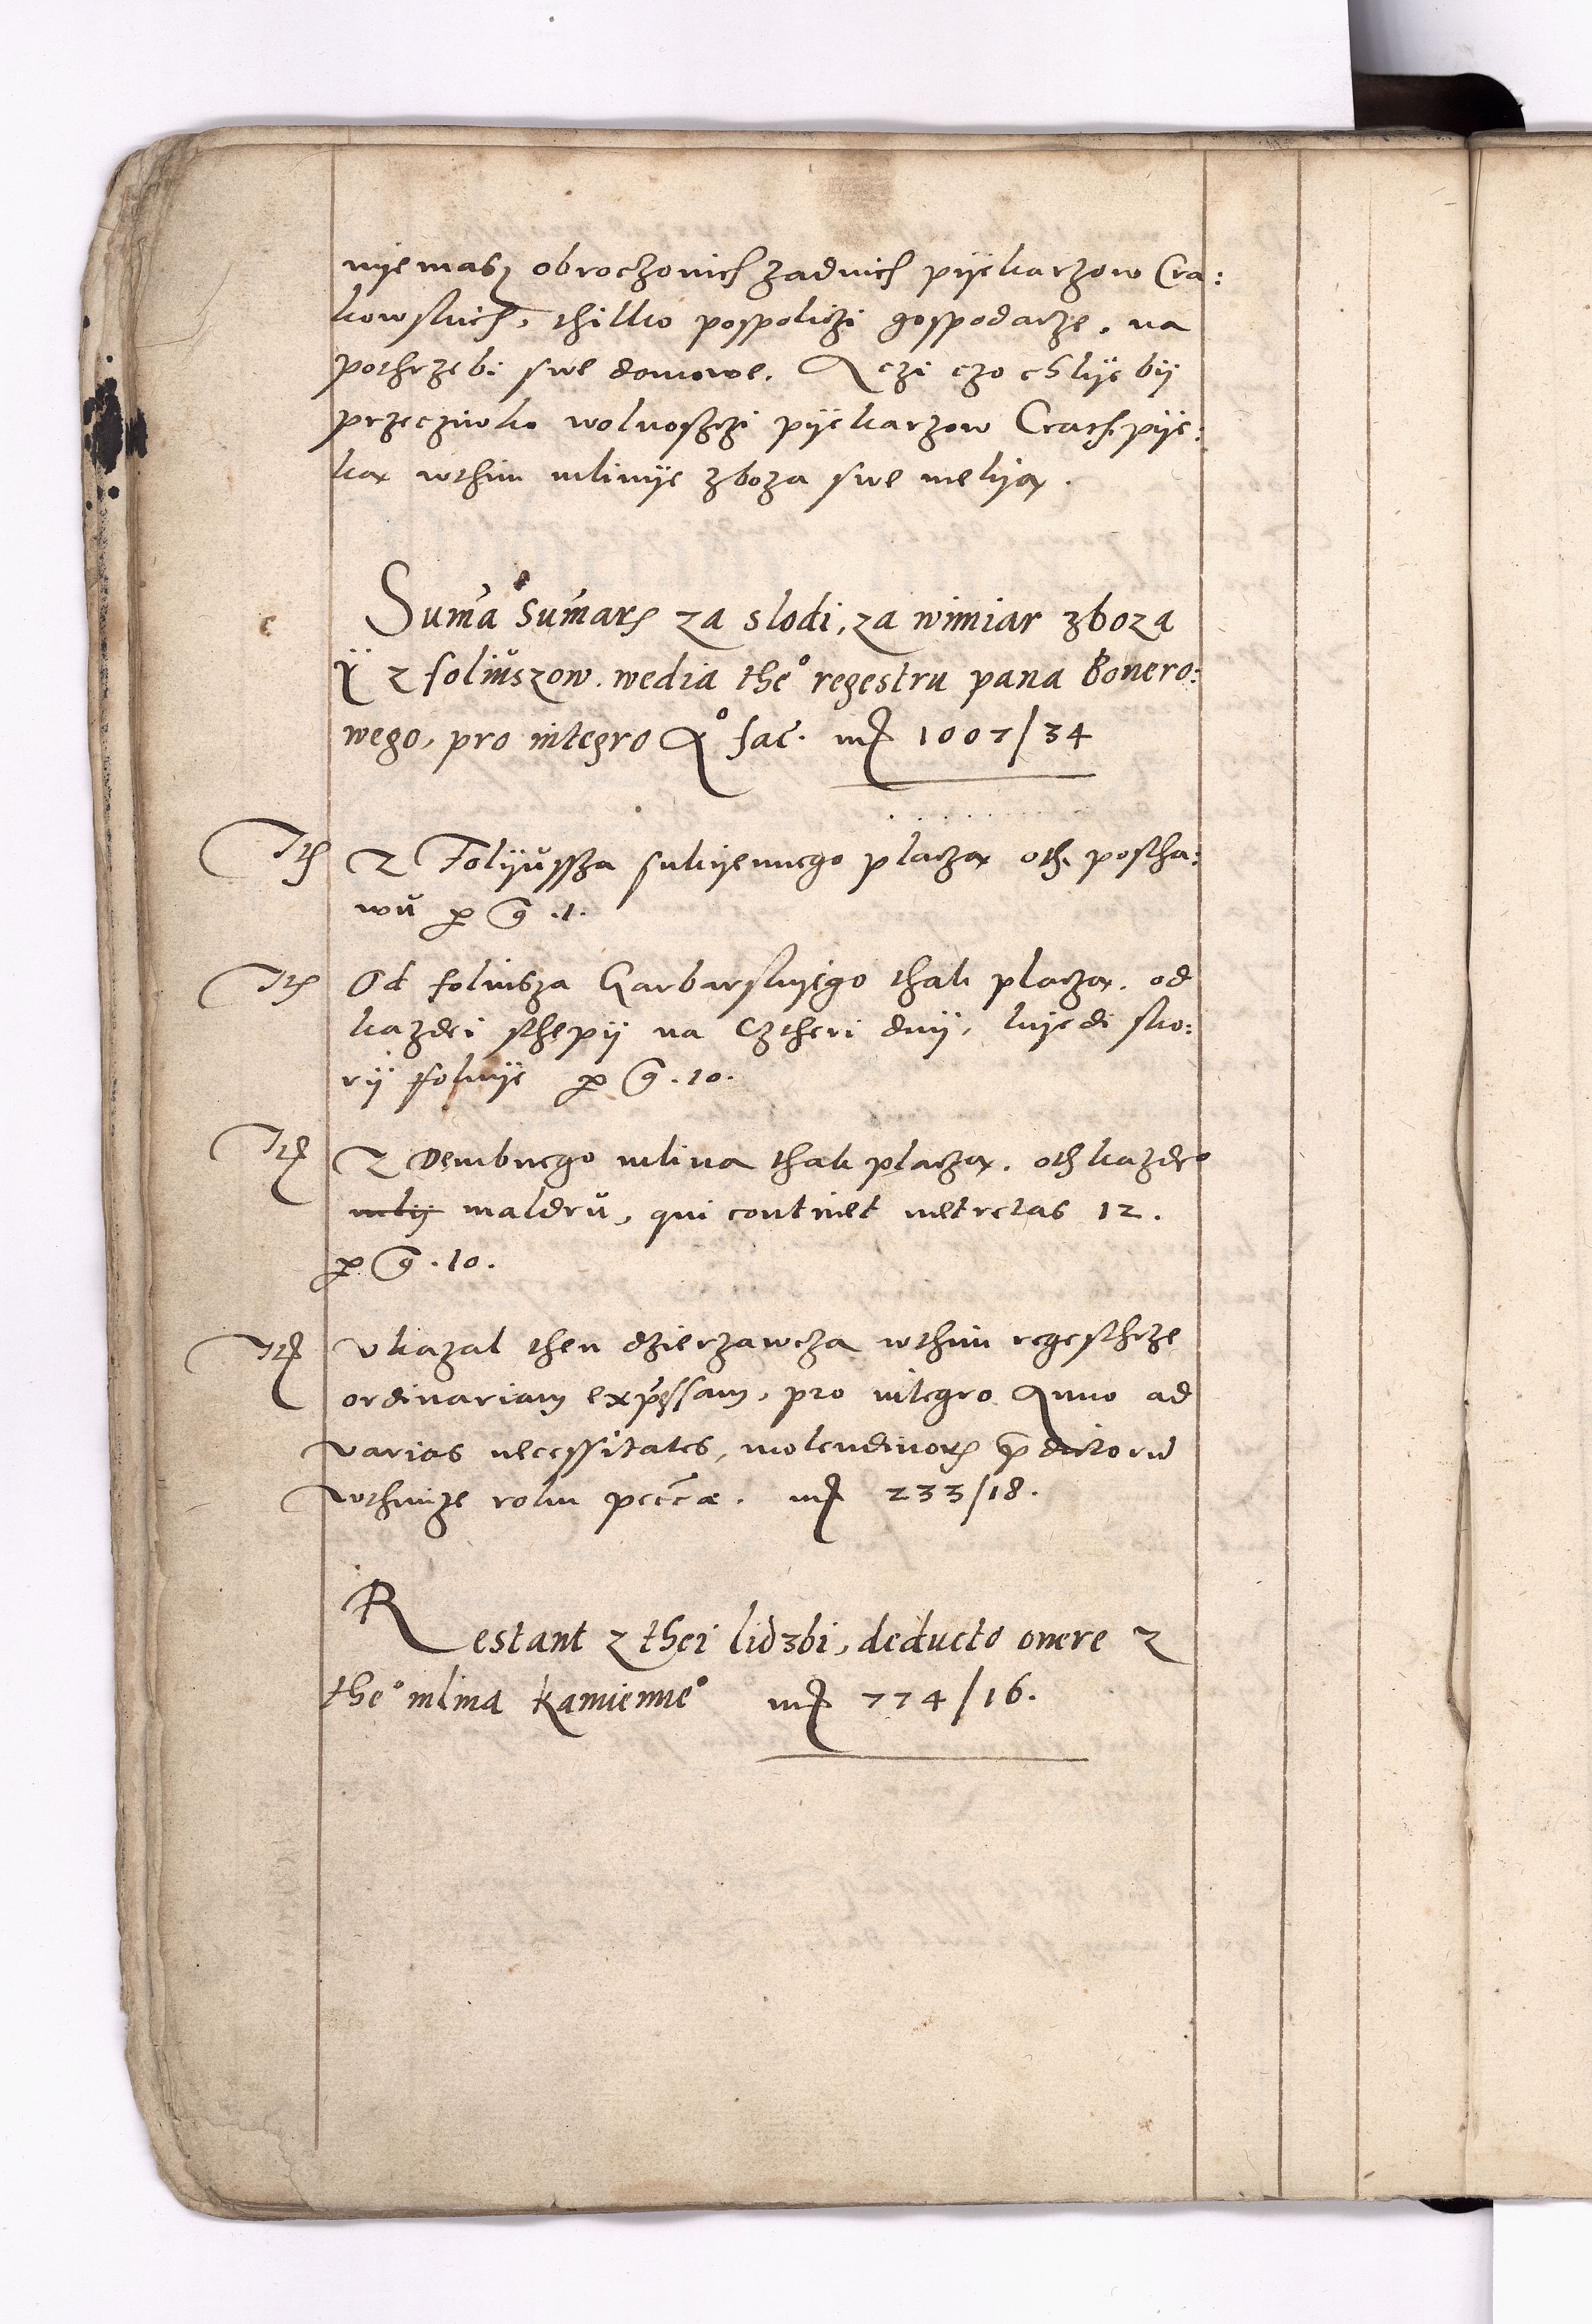 nÿemasz obroczonich zadnich pÿekarzow Cra:
kowskich, thilko pospoliczi gospodarze, na
pothrzebi swe domowe. Aczi czo chlÿebÿ
przecziwko wolnosczi pÿekarzow Crac. pÿe:
ką wthim mlinÿe zboza swe melÿą.
Suma Sumarum za slodi, za wimiar zboza
Ÿ z foliuszow. wedla the° regestru pana Bonero:
wego, pro integro A° fac. mrc 1007/34
Item Z Folÿussza sukÿennego placzą oth postha:
wu per g. 1.
Item Od foliusza Garbarskÿego thak placzą. od
kazdei sthepÿ na Cztheri dnÿ, kÿedi sko:
rÿ folujÿe per g. 10.
Item Z Dembnego mlina thak placzą. oth kazde°
mlÿ maldru, qui continet metretas 12.
per g. 10.
Item Vkazal then dzierzawcza wthim regesthrze
ordinariam expressam, pro integro Anno ad
varias necessitates, molendinorum predictorum
wthimze roku mrc 233/18.
Restant z thei lidzbi, deducto onere z
the° mlina Kamienne° mrc 774/16.